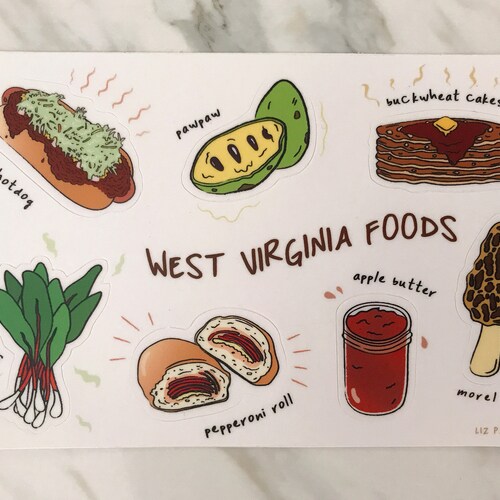 pawpaw
buckwheat cakes
hotdog
WEST VIRGINIA FOODS
apple butter
pepperoni roll
morel
LIZ P